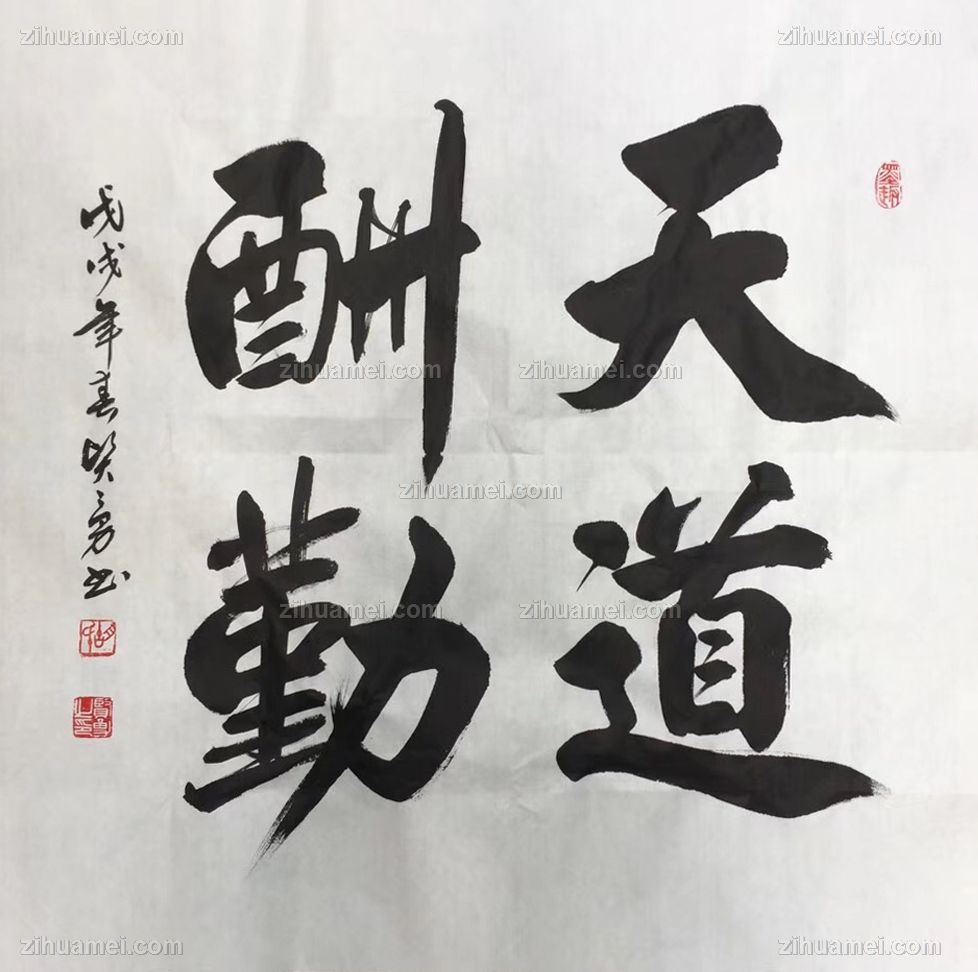 天道
酬勤
戊戌年春贤勇书
贤勇之印
zihuamei.com
zihuamei.com
zihuamei.com
zihuamei.com
zihuamei.com
zihuamei.com
zihuamei.com
zihuamei.com
zihuamei.com
zihuamei.com